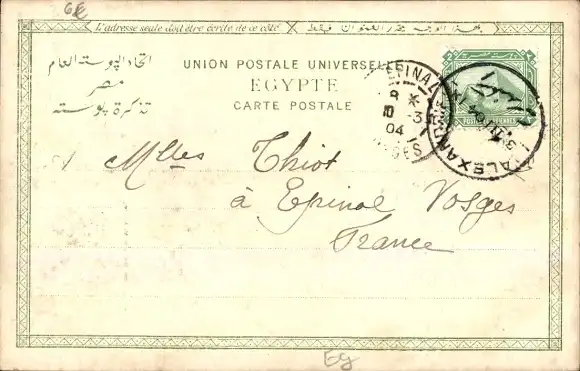 GE
L'adresse seule doit être écrite de ce côté
اتحاد البوستة العام
مصر
تذكرة بوستة
UNION POSTALE UNIVERSELLE
EGYPTE
CARTE POSTALE
EPINAL
8 *
10 -3
04
VOSGES
ALEXANDRIE
POSTES EGYPTIENNES
Mlles Thiot
à Epinal Vosges
France
Eg